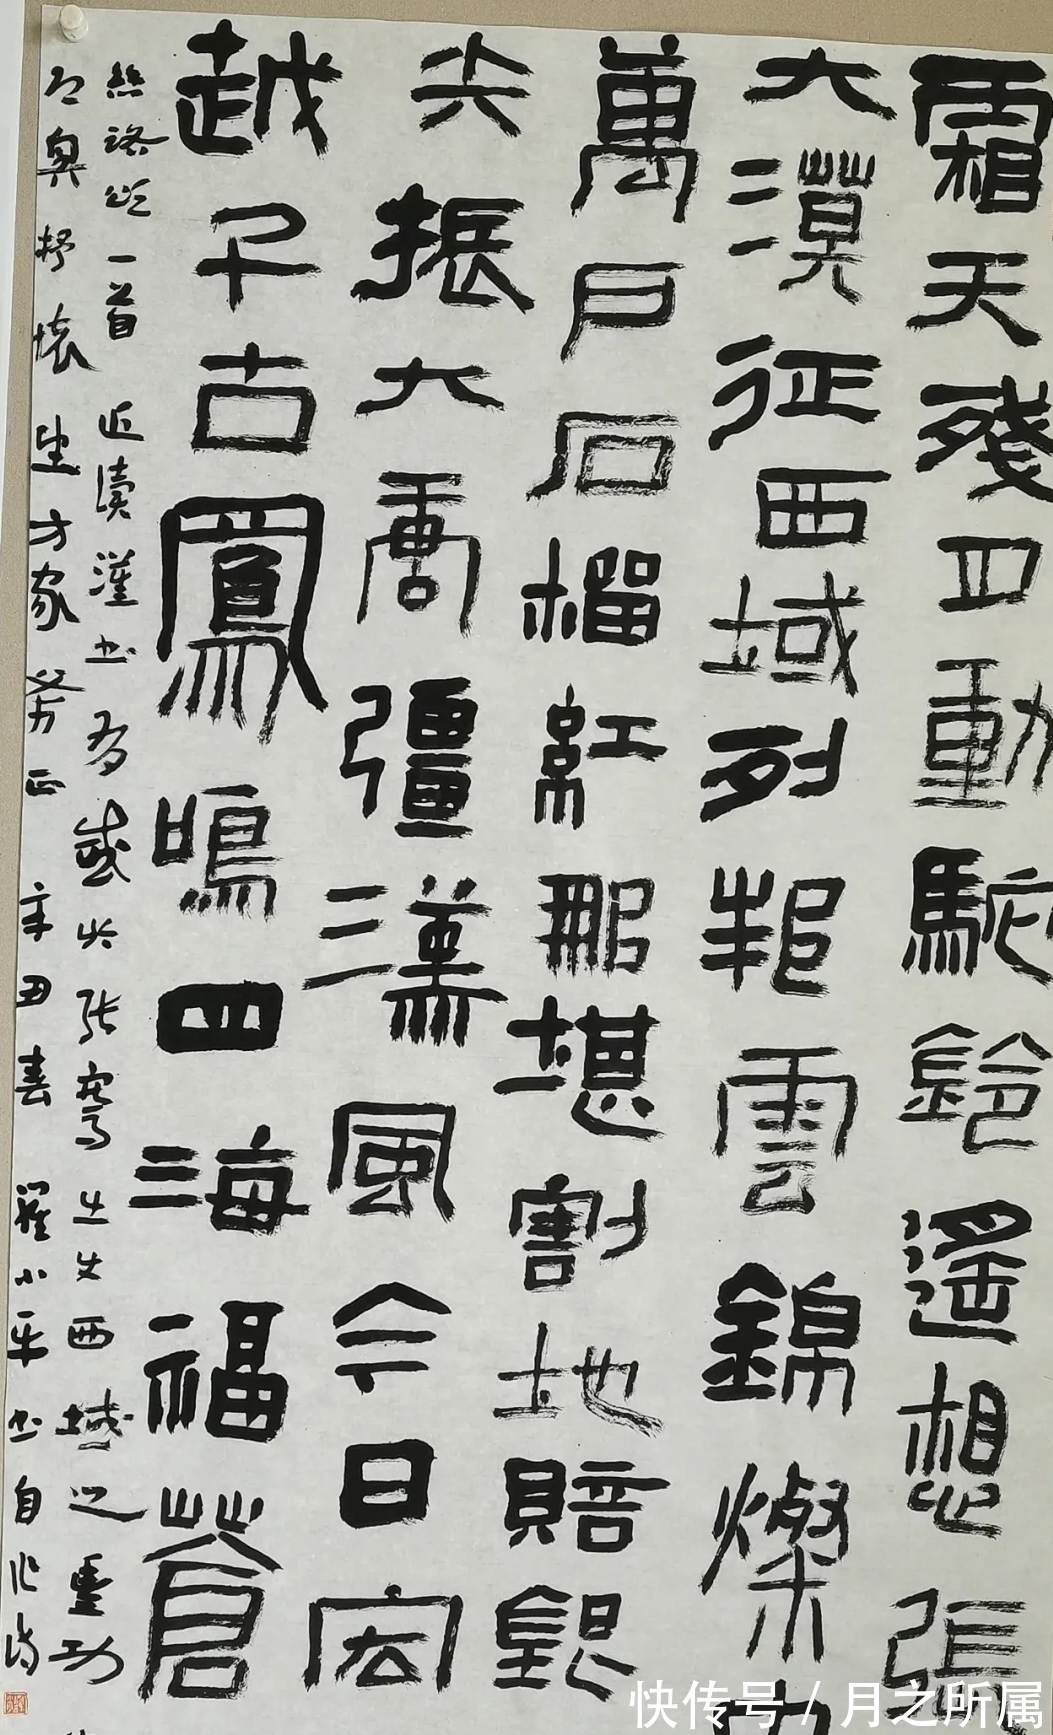 霜天殘四動駝鈴遥想張
大漠征西域列邦雲錦燦
萬戶石榴紅那堪割地賠銀
去振大裔彊漢風今日宏
越千古鳳鳴四海福蒼
丝路颂一首近读汉书有感於张骞出使西域之丰功
兴抒怀望方家赘正辛丑春翟小平书自作诗
快传号/月之所属